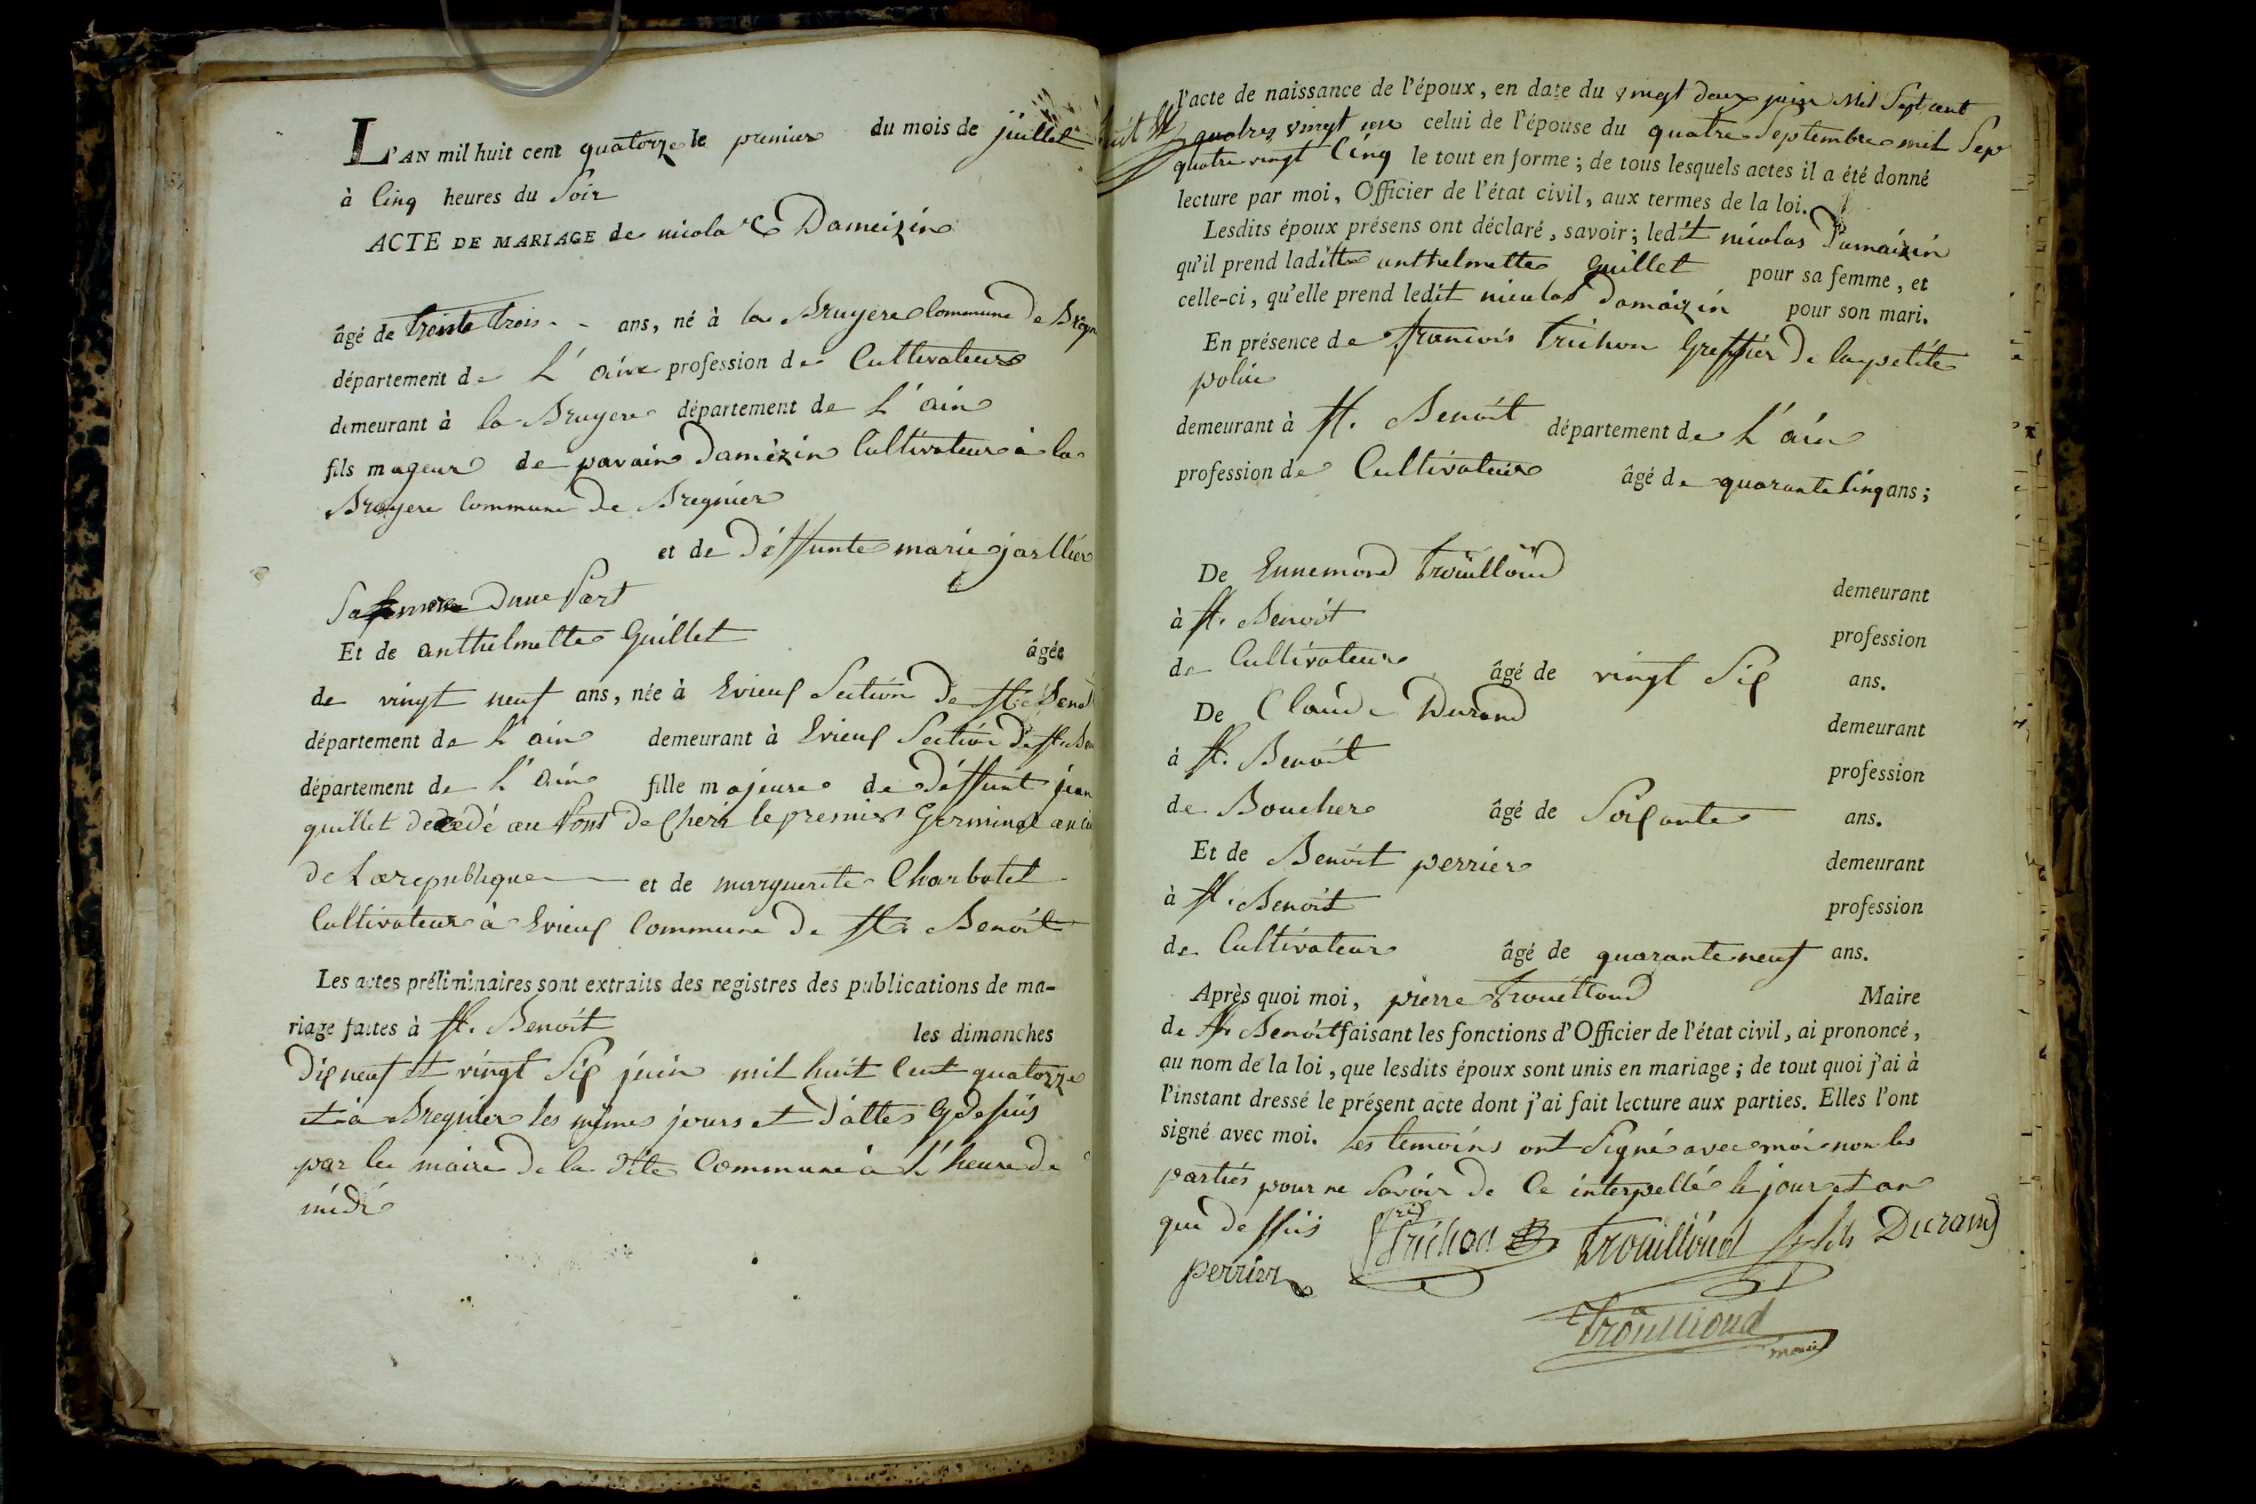 L'AN mil huit cent quatorze le premier du mois de juillet
à Cinq heures du Soir
ACTE DE MARIAGE de nicolas Dameizin
âgé de trente trois - - ans, né à la Bruyere Commune de Bregn
département de L'ain profession de Cultivateur
demeurant à la Bruyere département de L'ain
fils mageur de parain Damèzin Cultivateur à la
Bruyere Commune de Bregnier
et de déffunte marie jarllier
Sa femme Dune Part
Et de anthelmette Guillet âgée
de vingt neuf ans, née à Evieux Section de St. Benoit
département de L'ain demeurant à Evieux Section de St. Ben
département de L'ain fille majeure de déffunt jean
guillet décédé au Pont de Cheri le premier Germinal an
de La republique et de marguerite Charbotel
Cultivateur à Evieux Commune de St. Benoit
Les actes préliminaires sont extraits des registres des publications de ma-
riage faites à St. Benoit les dimanches
Dix neuf et vingt Six juin mil huit Cent quatorze
et à Bregnier les mêmes jours et dattes que dessus
par le maire de la dite Commune à L'heure de
midi
l'acte de naissance de l'époux, en date du vingt deux juin Mil Sept cent
quatres vingt un celui de l'épouse du quatre Septembre mil Sep
quatre vingt Cinq le tout en forme ; de tous lesquels actes il a été donné
lecture par moi, Officier de l'état civil, aux termes de la loi.
Lesdits époux présens ont déclaré, savoir ; ledit nicolas Damaizin
qu'il prend laditte anthelmette Guillet pour sa femme, et
celle-ci, qu'elle prend ledit nicolas Damaizin pour son mari.
En présence de francois Trichon Greffier de la petite
police
demeurant à St. Benoit département de L'ain
profession de Cultivateur âgé de quarante Cinq ans ;
De Ennemond Trouilloud demeurant
à St. Benoit profession
de Cultivateur âgé de vingt Six ans.
De Claude Durand demeurant
à St. Benoit profession
de Boucher âgé de Soixante ans.
Et de Benoit perrier demeurant
à St. Benoit profession
de Cultivateur âgé de quarante neuf ans.
Après quoi moi, pierre Trouilloud Maire
de St. Benoit faisant les fonctions d'Officier de l'état civil, ai prononcé,
au nom de la loi, que lesdits époux sont unis en mariage ; de tout quoi j'ai à
l'instant dressé le présent acte dont j'ai fait lecture aux parties. Elles l'ont
signé avec moi. les temoins ont Signé avec moi non les
parties pour ne Savoir de Ce interpellé le jour et an
que dessus Trichon Trouilloud Durand
perrier
Trouilloud
maire